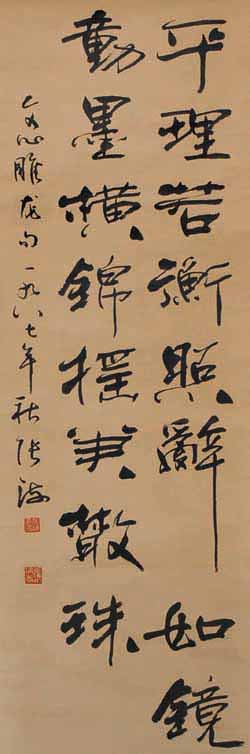 平理若衡照辭如鏡
動墨橫錦搖筆散珠
文心雕龙句一九八七年秋张海